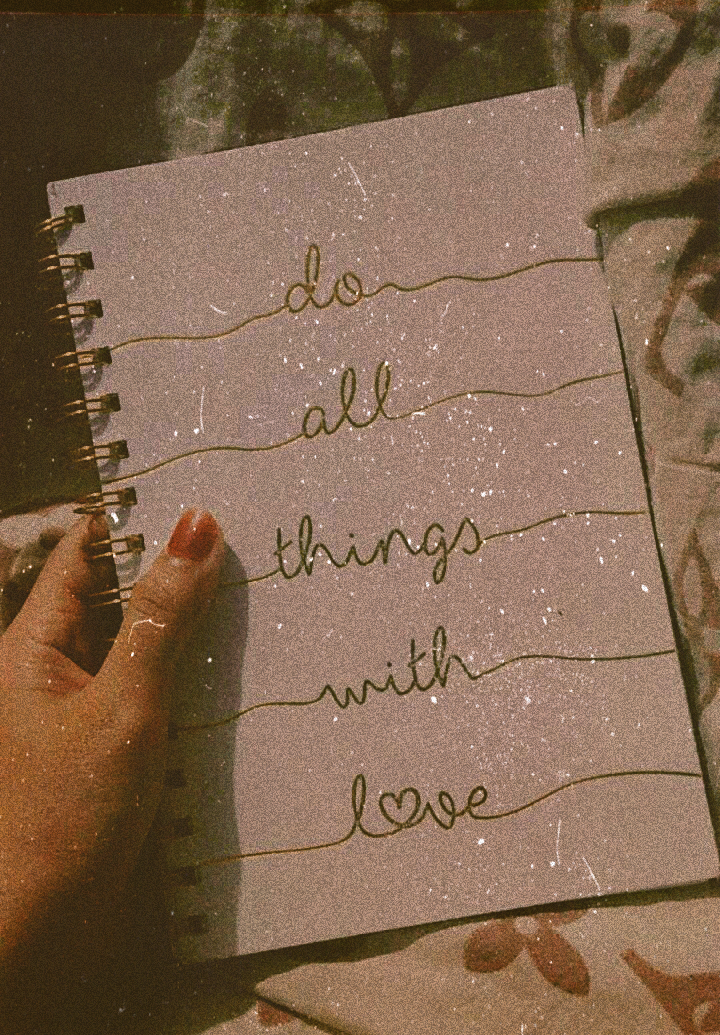 do
all
things
with
love